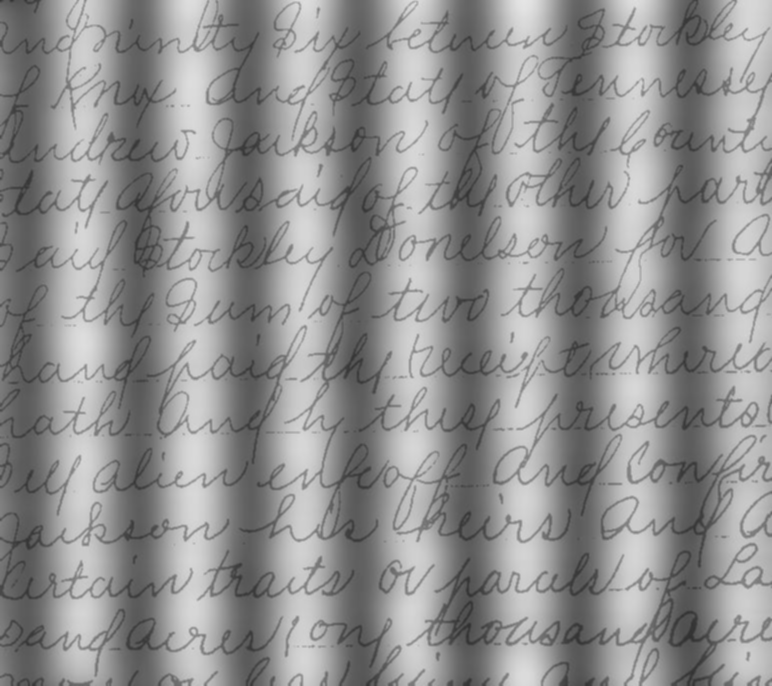 and ninety Six between Stockley
of Knox and State of Tennessee
Andrew Jackson of the County
State aforesaid of the other part
Said Stockley Donelson for a
of the Sum of two thousand
hand paid the receipt where
hath and by these presents
Sell alien enfeoff and Confir
Jackson his heirs and a
Certain tracts or parcels of La
sand acres, one thousand acre
more or less being and bein